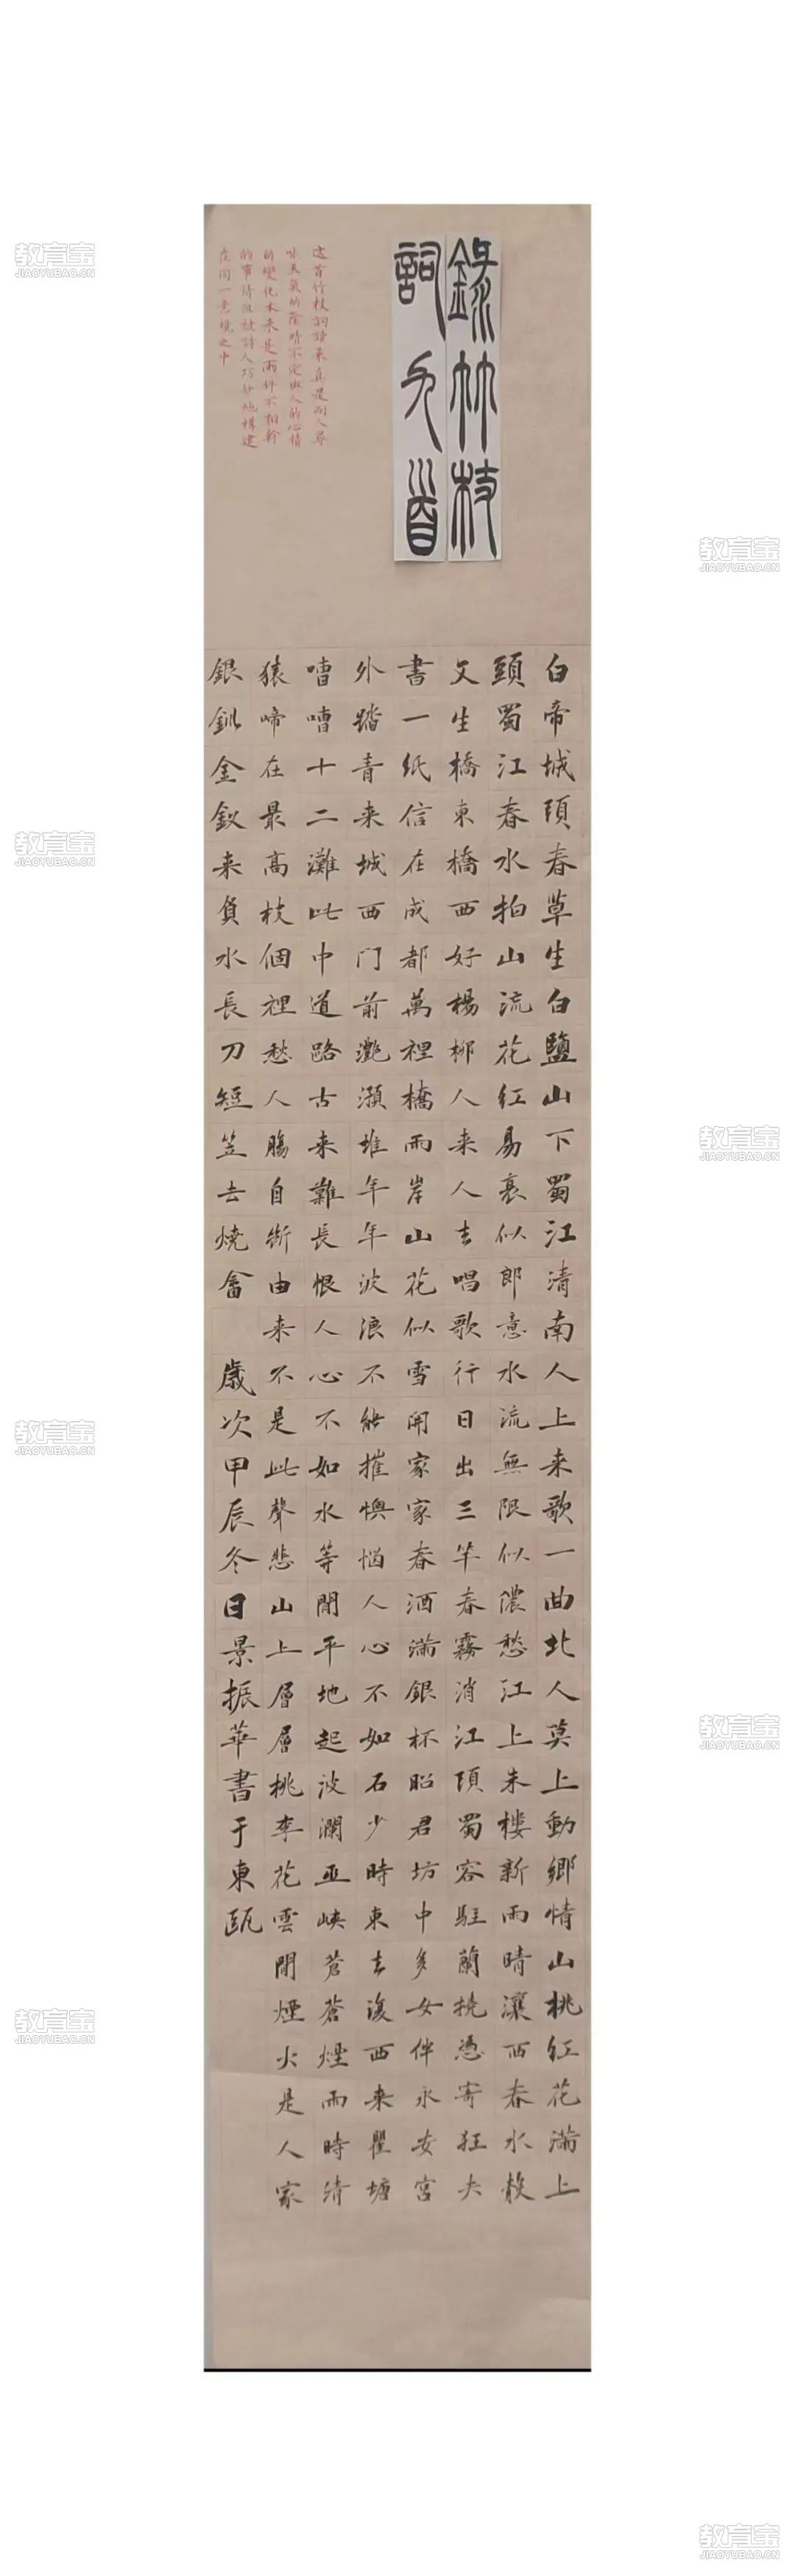 錄竹枝
詞九首
這首竹枝詞讀來真是別人尋
味天氣的陰晴不定與人的心情
的變化本来是兩件不相幹
的事情但被詩人巧妙地構建
在同一意境之中
白帝城頭春草生白鹽山下蜀江清南人上来歌一曲北人莫上動鄉情山桃紅花滿上
頭蜀江春水拍山流花紅易衰似郎意水流無限似儂愁江上朱樓新雨晴瀼西春水縠
文生橋東橋西好楊柳人来人去唱歌行日出三竿春霧消江頭蜀客駐蘭橈憑寄狂夫
書一紙信在成都萬裡橋兩岸山花似雪開家家春酒滿銀杯昭君坊中多女伴永安宮
外踏青来城西門前灩澦堆年年波浪不能摧懊惱人心不如石少時東去復西来瞿塘
嘈嘈十二灘此中道路古来難長恨人心不如水等閒平地起波瀾巫峽蒼蒼煙雨時清
猿啼在最高枝個裡愁人腸自斷由来不是此聲悲山上層層桃李花雲間煙火是人家
銀釧金釵来負水長刀短笠去燒畬 歲次甲辰冬日景振華書于東甌
教育宝
JIAOYUBAO.CN
教育宝
JIAOYUBAO.CN
教育宝
JIAOYUBAO.CN
教育宝
JIAOYUBAO.CN
教育宝
JIAOYUBAO.CN
教育宝
JIAOYUBAO.CN
教育宝
JIAOYUBAO.CN
教育宝
JIAOYUBAO.CN